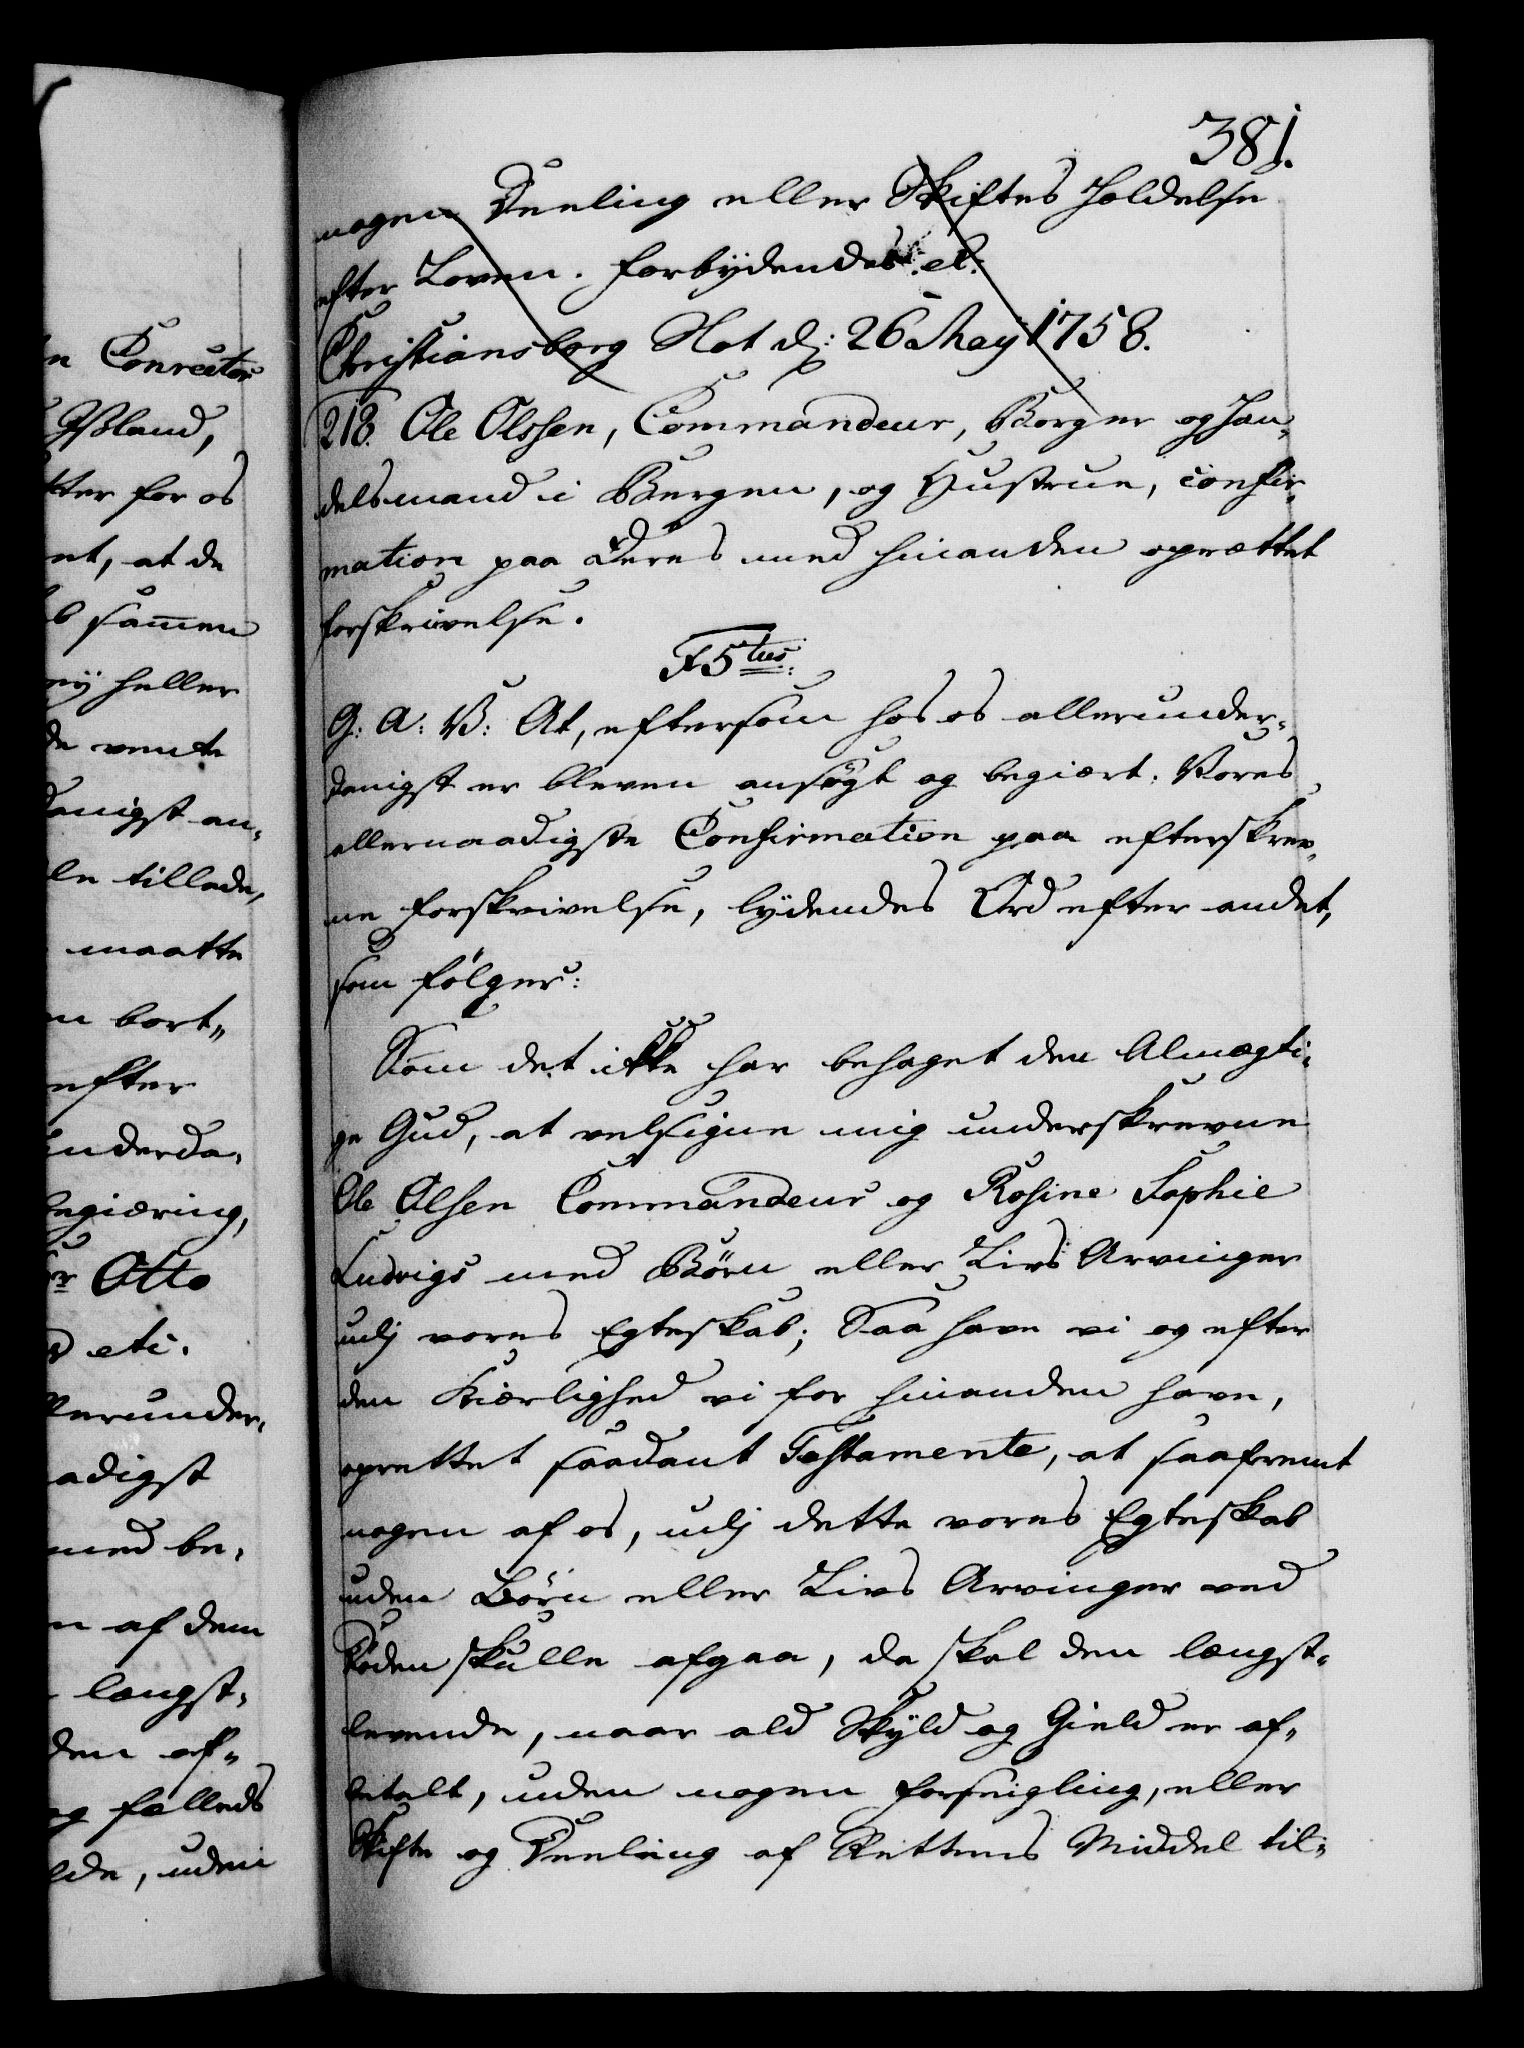 381.
nogen Deeling eller Skiftes Holdelse
efter Loven. Forbydendes et:
Christiansborg Slot d: 26 May 1758.
218. Ole Olssen, Commandeur, Borger og Han„
delsmand i Bergen, og Hustrue, Confir„
mation paa Deres med hinanden oprættet
forskrivelse.
F5tus:
G: A: V: At, eftersom hos os allerunder„
danigst er bleven ansøgt og begiært Vores
allernaadigste Confirmation paa efterskrev„
ne forskrivelse, lydendes Ord efter andet,
som følger:
Som det ikke har behaget den Almægti„
ge Gud, at velsigne mig underskrevne
Ole Olsen Commandeur og Rosine Sophie
Ludvigs med Børn eller Livs Arvinger
udj vores Egteskab; Saa have vi og efter
den Kiærlighed vi for hinanden have,
oprettet saadant Testamente, at saafremt
nogen af os, udj dette vores Egteskab
uden Børn eller Livs Arvinger ved
Døden skulle afgaa, da skal den længst„
levende, naar ald Skyld og Gield er af„
betalt, uden nogen forseigling, eller
Skifte og Deeling af Rettens Middel til„
en Conrector
Island,
tter for os
et, at de
b sam̄en
ey heller
de vente
danigst an„
le tillade,
maatte
n bort„
efter
underda„
begiæring,
r Otto
etc.
lerunder„
adigst
med be„
n af dem
længst„
den af„
og fælleds
lde, uden